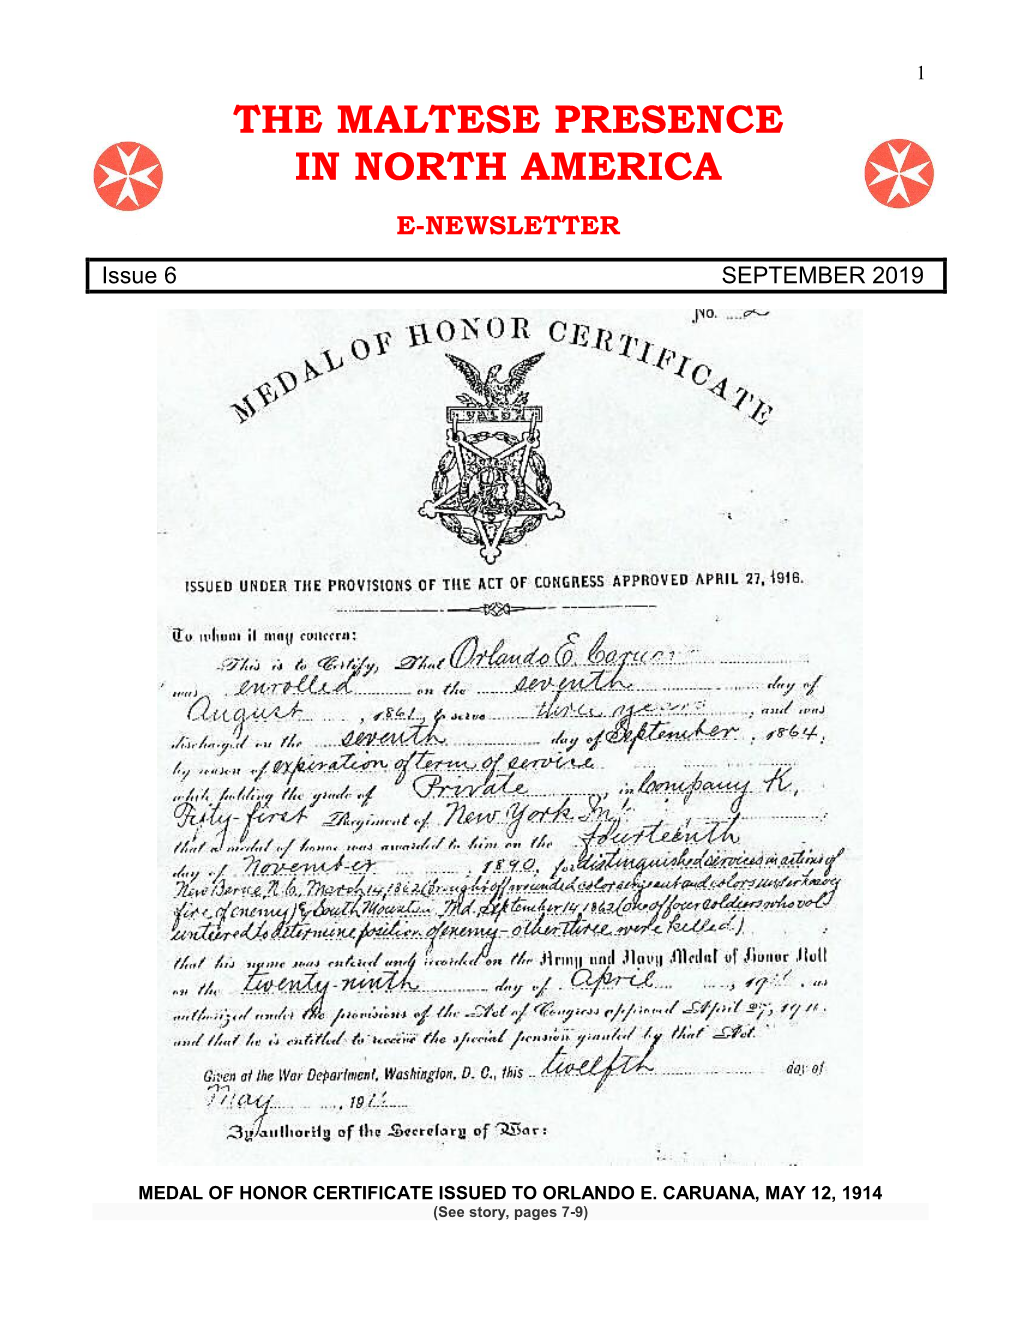 1
THE MALTESE PRESENCE
IN NORTH AMERICA
E-NEWSLETTER
Issue 6 SEPTEMBER 2019
No. 2
MEDAL OF HONOR CERTIFICATE
VALOR
ISSUED UNDER THE PROVISIONS OF THE ACT OF CONGRESS APPROVED APRIL 27, 1916.
To whom it may concern:
This is to Certify, That Orlando E. Caruana
was enrolled on the seventh day of
August, 1861, to serve three years, and was
discharged on the seventh day of September, 1864,
by reason of expiration of term of service
while holding the grade of Private, in Company K,
Fifty-first Regiment of New York Inf.;
that a medal of honor was awarded to him on the fourteenth
day of November, 1890, for distinguished services in actions of
New Berne, N.C., March 14, 1862 (brought off wounded color sergeant and colors under heavy
fire of enemy) & South Mountain, Md., September 14, 1862 (one of four soldiers who vol-
unteered to determine position of enemy - other three were killed.)
that his name was entered and recorded on the Army and Navy Medal of Honor Roll
on the twenty-ninth day of April, 19, as
authorized under the provisions of the Act of Congress approved April 27, 19,
and that he is entitled to receive the special pension granted by that Act.
Given at the War Department, Washington, D. C., this twelfth day of
May, 19
By authority of the Secretary of War:
MEDAL OF HONOR CERTIFICATE ISSUED TO ORLANDO E. CARUANA, MAY 12, 1914
(See story, pages 7-9)